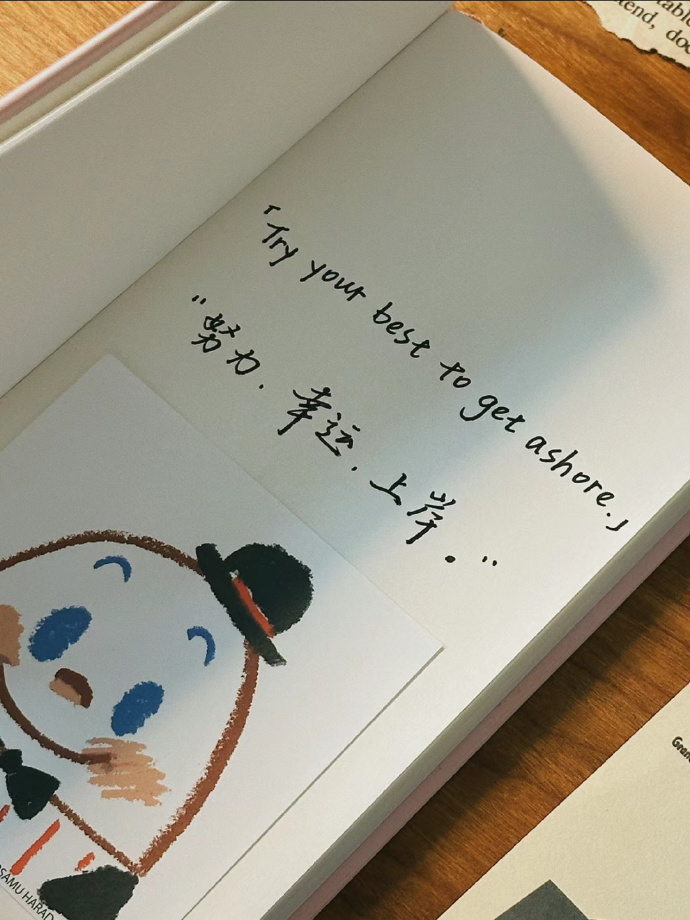 「Try your best to get ashore.」
"努力,幸运,上岸。"
tend, doc
SAMU HARAD